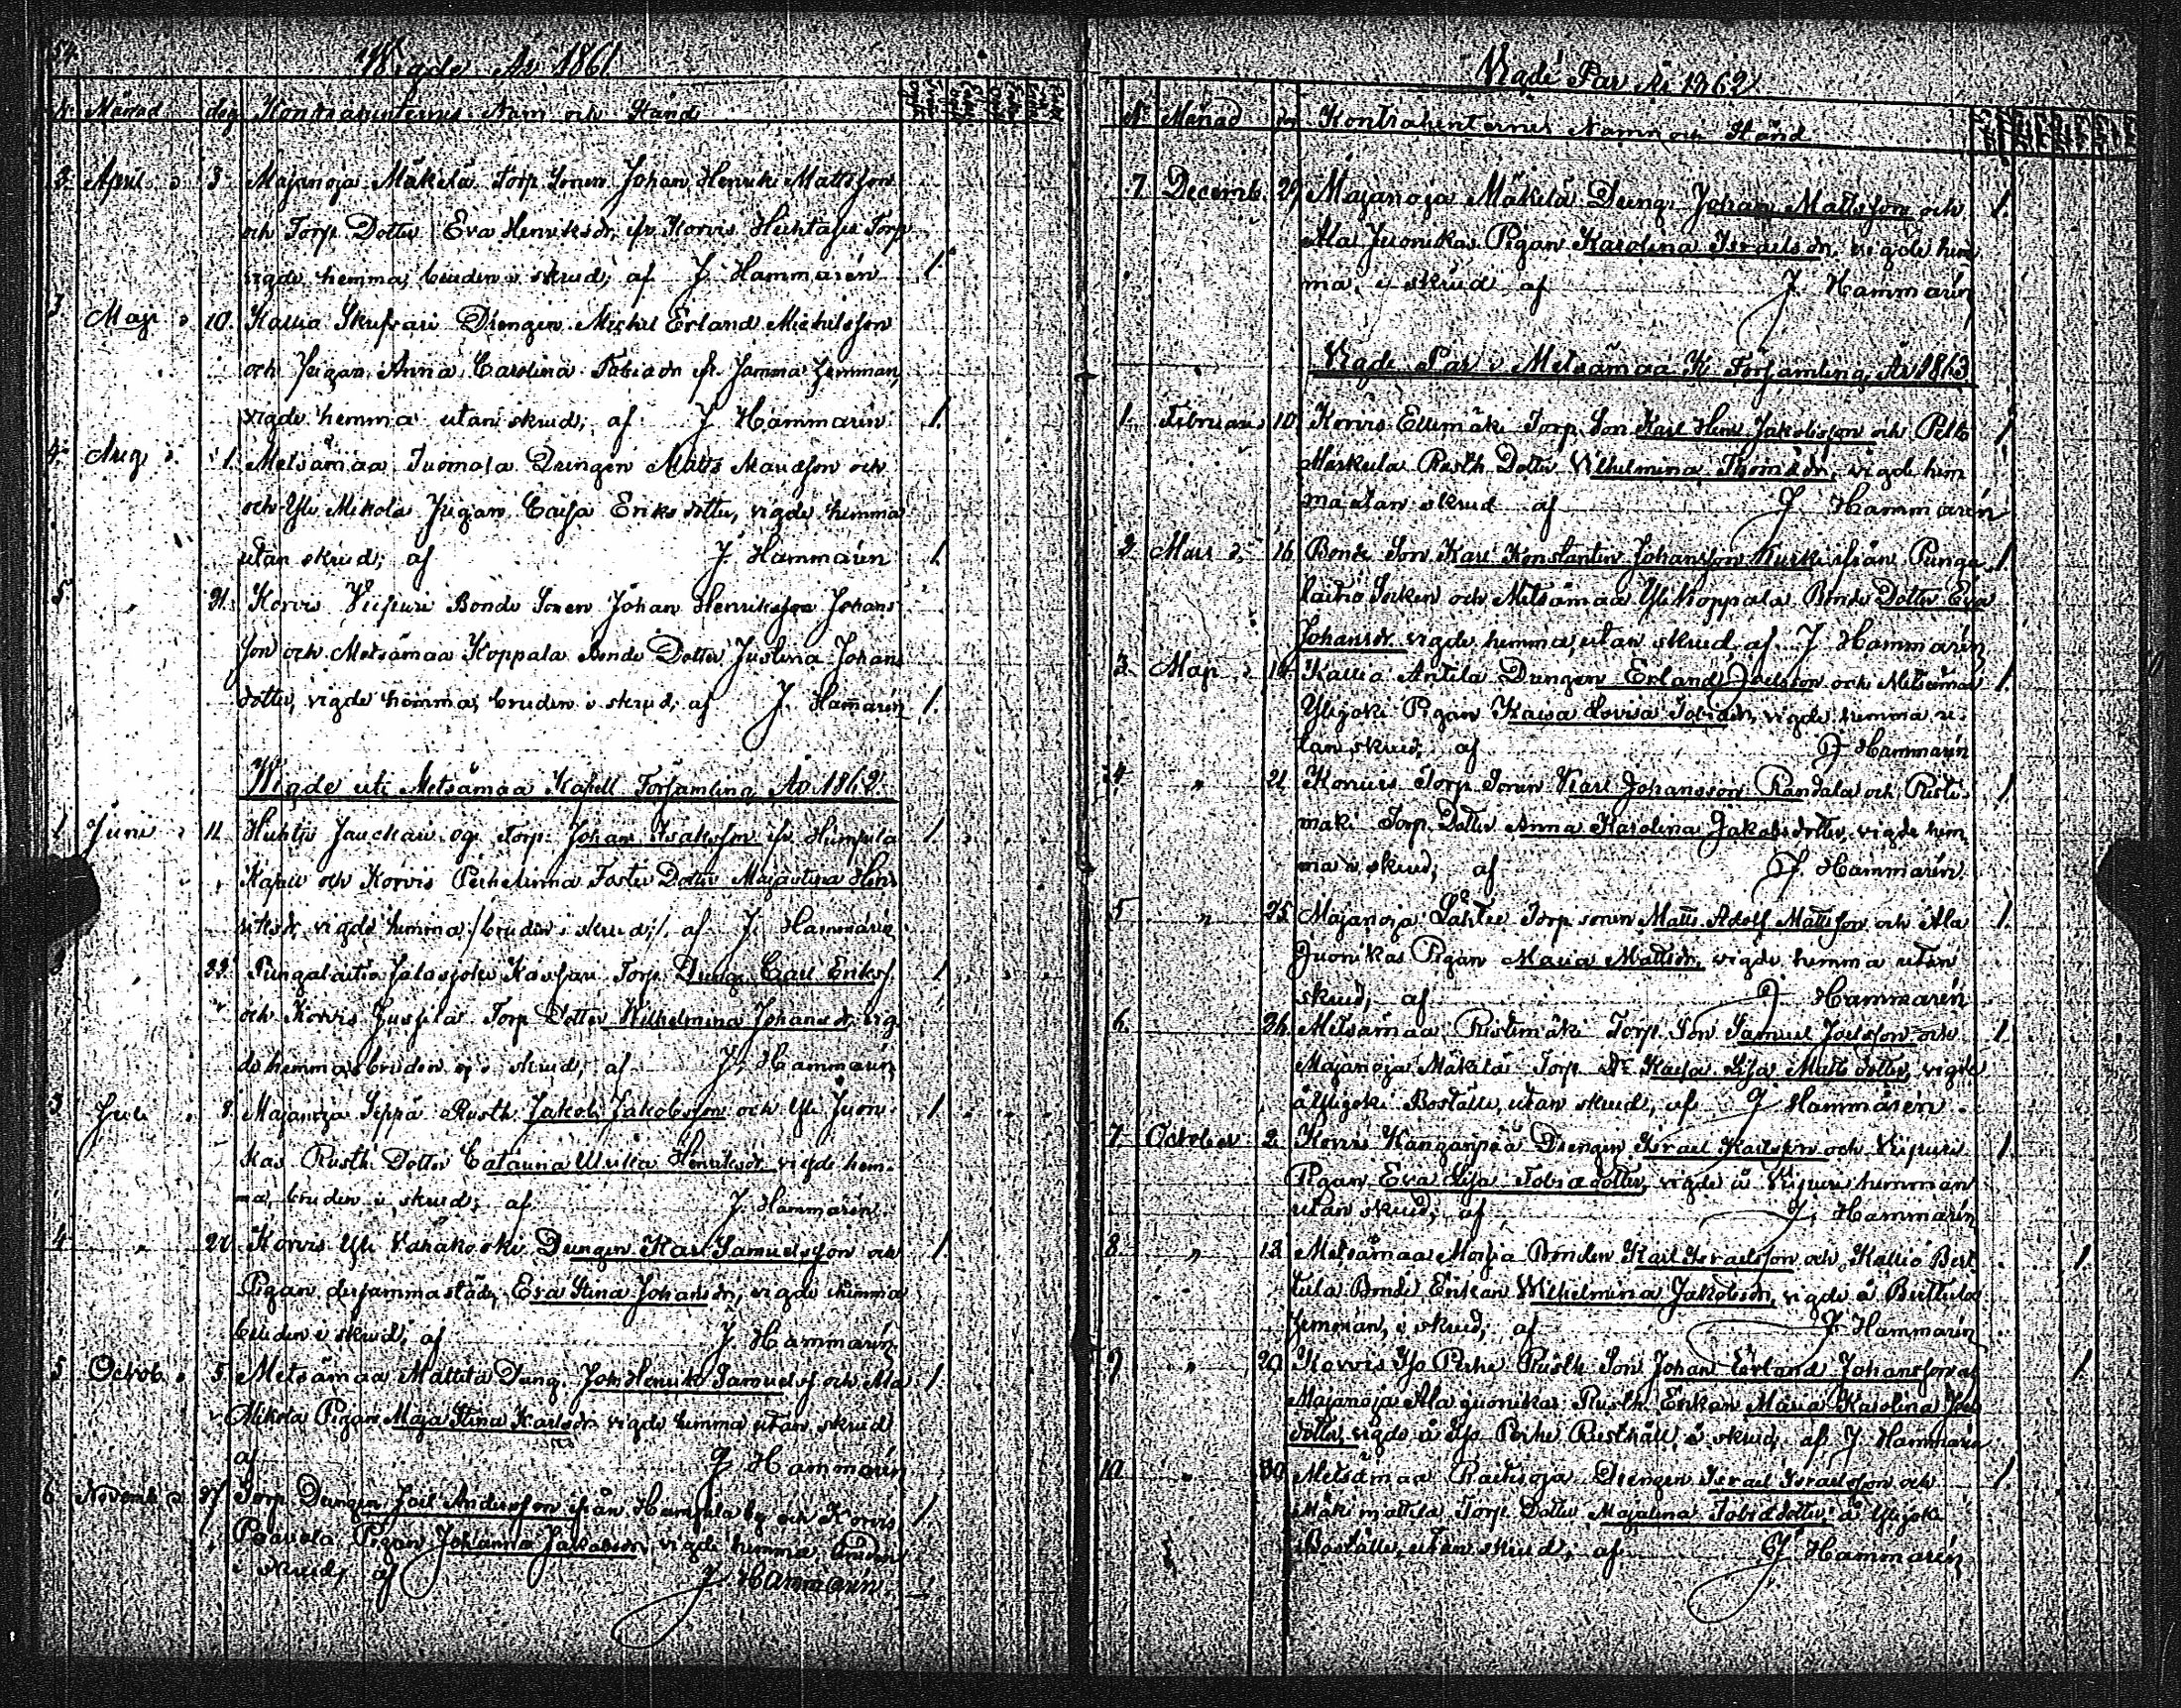 54.
Wigde År 1861
N: Månad dag Kontrahenternes Namn och Stånd
2. April 3. Majanoja Mäkelä Torp Sonen Johan Henrik Mattsson
och Torp. Dotter Eva Henriksdr, ifr. Korvis Huhtasu Torp
vigde hemma, bruden i skrud; af J. Hammarén 1.
3 Maji 10. Kallia Skufvari Drengen Michel Erland Michelsson
och Pigan Anna Carolina Tobiædr fr. Hemman,
vigde hemma utan skrud; af J Hammarén 1.
4. Aug. 1. Metsämaa Tuomola Drengen Matts Mattsson och
och Yli Mikola Pigan Caisa Eriks dotter, vigde hemma
utan skrud; af J. Hammarén 1.
5 " 21. Korvis Viipuri Bonde Sonen Johan Henriksson Johans-
son och Metsämaa Koppala Bonde Dotter Justina Johans
dotter, vigde hemma, bruden i skrud, af J. Hamarén 1.
Wigde uti Metsämaa Kapell Församling År 1862.
1 Juni 11. Huhtis Torp. Johan Isaksson ifr. Humpila
Kapell och Korvis Perheluma Foster Dotter Majastina Hen-
riksdr, vigde hemma /: bruden i skrud :/. af J. Hammarén 1.
2 22. Pungalaitio Jalasjoki Torp. Dreng Carl Eriks.
och Korvis Jussila Torp Dotter Wilhelmina Johansdr, vig-
de hemma, bruden ej i skrud, af J. Hammarén 1
3 Juli 8. Majanoja Seppä Rusth. Jakob Jakobsson och Yli Juoni-
kas Rusth. Dotter Catarina Ulrika Henriksdr, vigde hem-
ma, bruden i skrud; af J. Hammarén. 1
4 " 27. Korvis Yli Vähäkoski Drengen Karl Samuelsson och
Pigan dersammastäde, Eva Stina Johansdr, vigde hemma
bruden i skrud, af J. Hammarén. 1.
5 Octob. 5. Metsämaa Mattila Dreng. Joh: Henrik Samuels. och Ala
Mikola Pigan Maja Stina Karlsdr. vigde hemma utan skrud
af J Hammarén 1.
6. Novemb. 27. Torp. Drengen Joel Andersson ifrån Humpila by och Korvis
Paavola Pigan Johanna Jakobsdr, vigde hemma, bruden
i skrud, af J Hammarén. 1
Vigde Par År 1862
N: Månad dag Kontrahenternes Namn och Stånd
7. Decemb. 29. Majanoja Mäkilä Dreng. Johan Mattsson och
Ala Juonikas Pigan Karolina Israelsdr, vigde hem
ma, i skrud af J. Hammarén 1.
Vigde Par i Metsämaa K. Församling År 1863
1. Februari 10. Korvis Ellimäki Torp. Son Karl Henr. Jakobsson och Pelto
Markula Rusth. Dotter Vilhelmina Thomædr, vigde hem
ma utan skrud af J Hammarén 1
2. Mars 16. Bonde Son Karl Konstantin Johansson Kurki ifrån Punga
laitio Socken och Metsämaa Yli Koppala Bonde Dotter Eva
Johansdr. vigde hemma, utan skrud, af J Hammarén 1.
3. Maj 14. Kallio Antila Drengen Erland Joelsson och Metsämaa
Ylijoki Pigan Kaisa Lovisa Tobiædr, vigde hemma u-
tan skrud; af J Hammarén 1.
4. " 21. Korvis Torp. Sonen Karl Johansson Randala och Risti-
mäki Torp. Dotter Anna Karolina Jakobsdotter, vigde hem
ma i skrud; af J. Hammarén. 1.
5 " 25. Majanoja Lähtee Torp sonen Matts Adolf Mattsson och Ala
Juonikas Pigan Maria Mattsdr, vigde hemma utan
skrud; af J Hammarén 1.
6. 26. Metsämaa Ristimäki Torp. Son Samuel Joelsson och
Majanoja Mäkelä Torp Dr Kaisa Lisa Matts dotter, vigde
å Ylijoki Boställe, utan skrud, af J Hammarén. 1.
7. October 2. Korvis Kanganpää Drengen Israel Karlsson och Viipuri
Pigan Eva Lisa Tobiædotter, vigde å Viipuri hemman
utan skrud, af J. Hammarén 1.
8. " 18. Metsämaa Bonden Karl Israelsson och Kallio Bert
tula Bonde Enkan Wilhelmina Jakobsdr, vigde å Bertula
hemman, i skrud; af J. Hammarén 1.
9 " 20. Korvis Iso Perhe Rusth Son Johan Erland Johansson och
Majanoja Ala Juonikas Rusth. Enkan Maria Karolina Joels
dotter, vigde å Iso Perhe Rusthåll, i skrud, af J. Hammarén 1.
10. " 30. Metsämaa Raitinoja Drengen Israel Israelsson och
Mäki mattila Torp. Dotter Majalina Tobiædotter, å Ylijoki
Boställe, utan skrud; af J Hammarén 1.